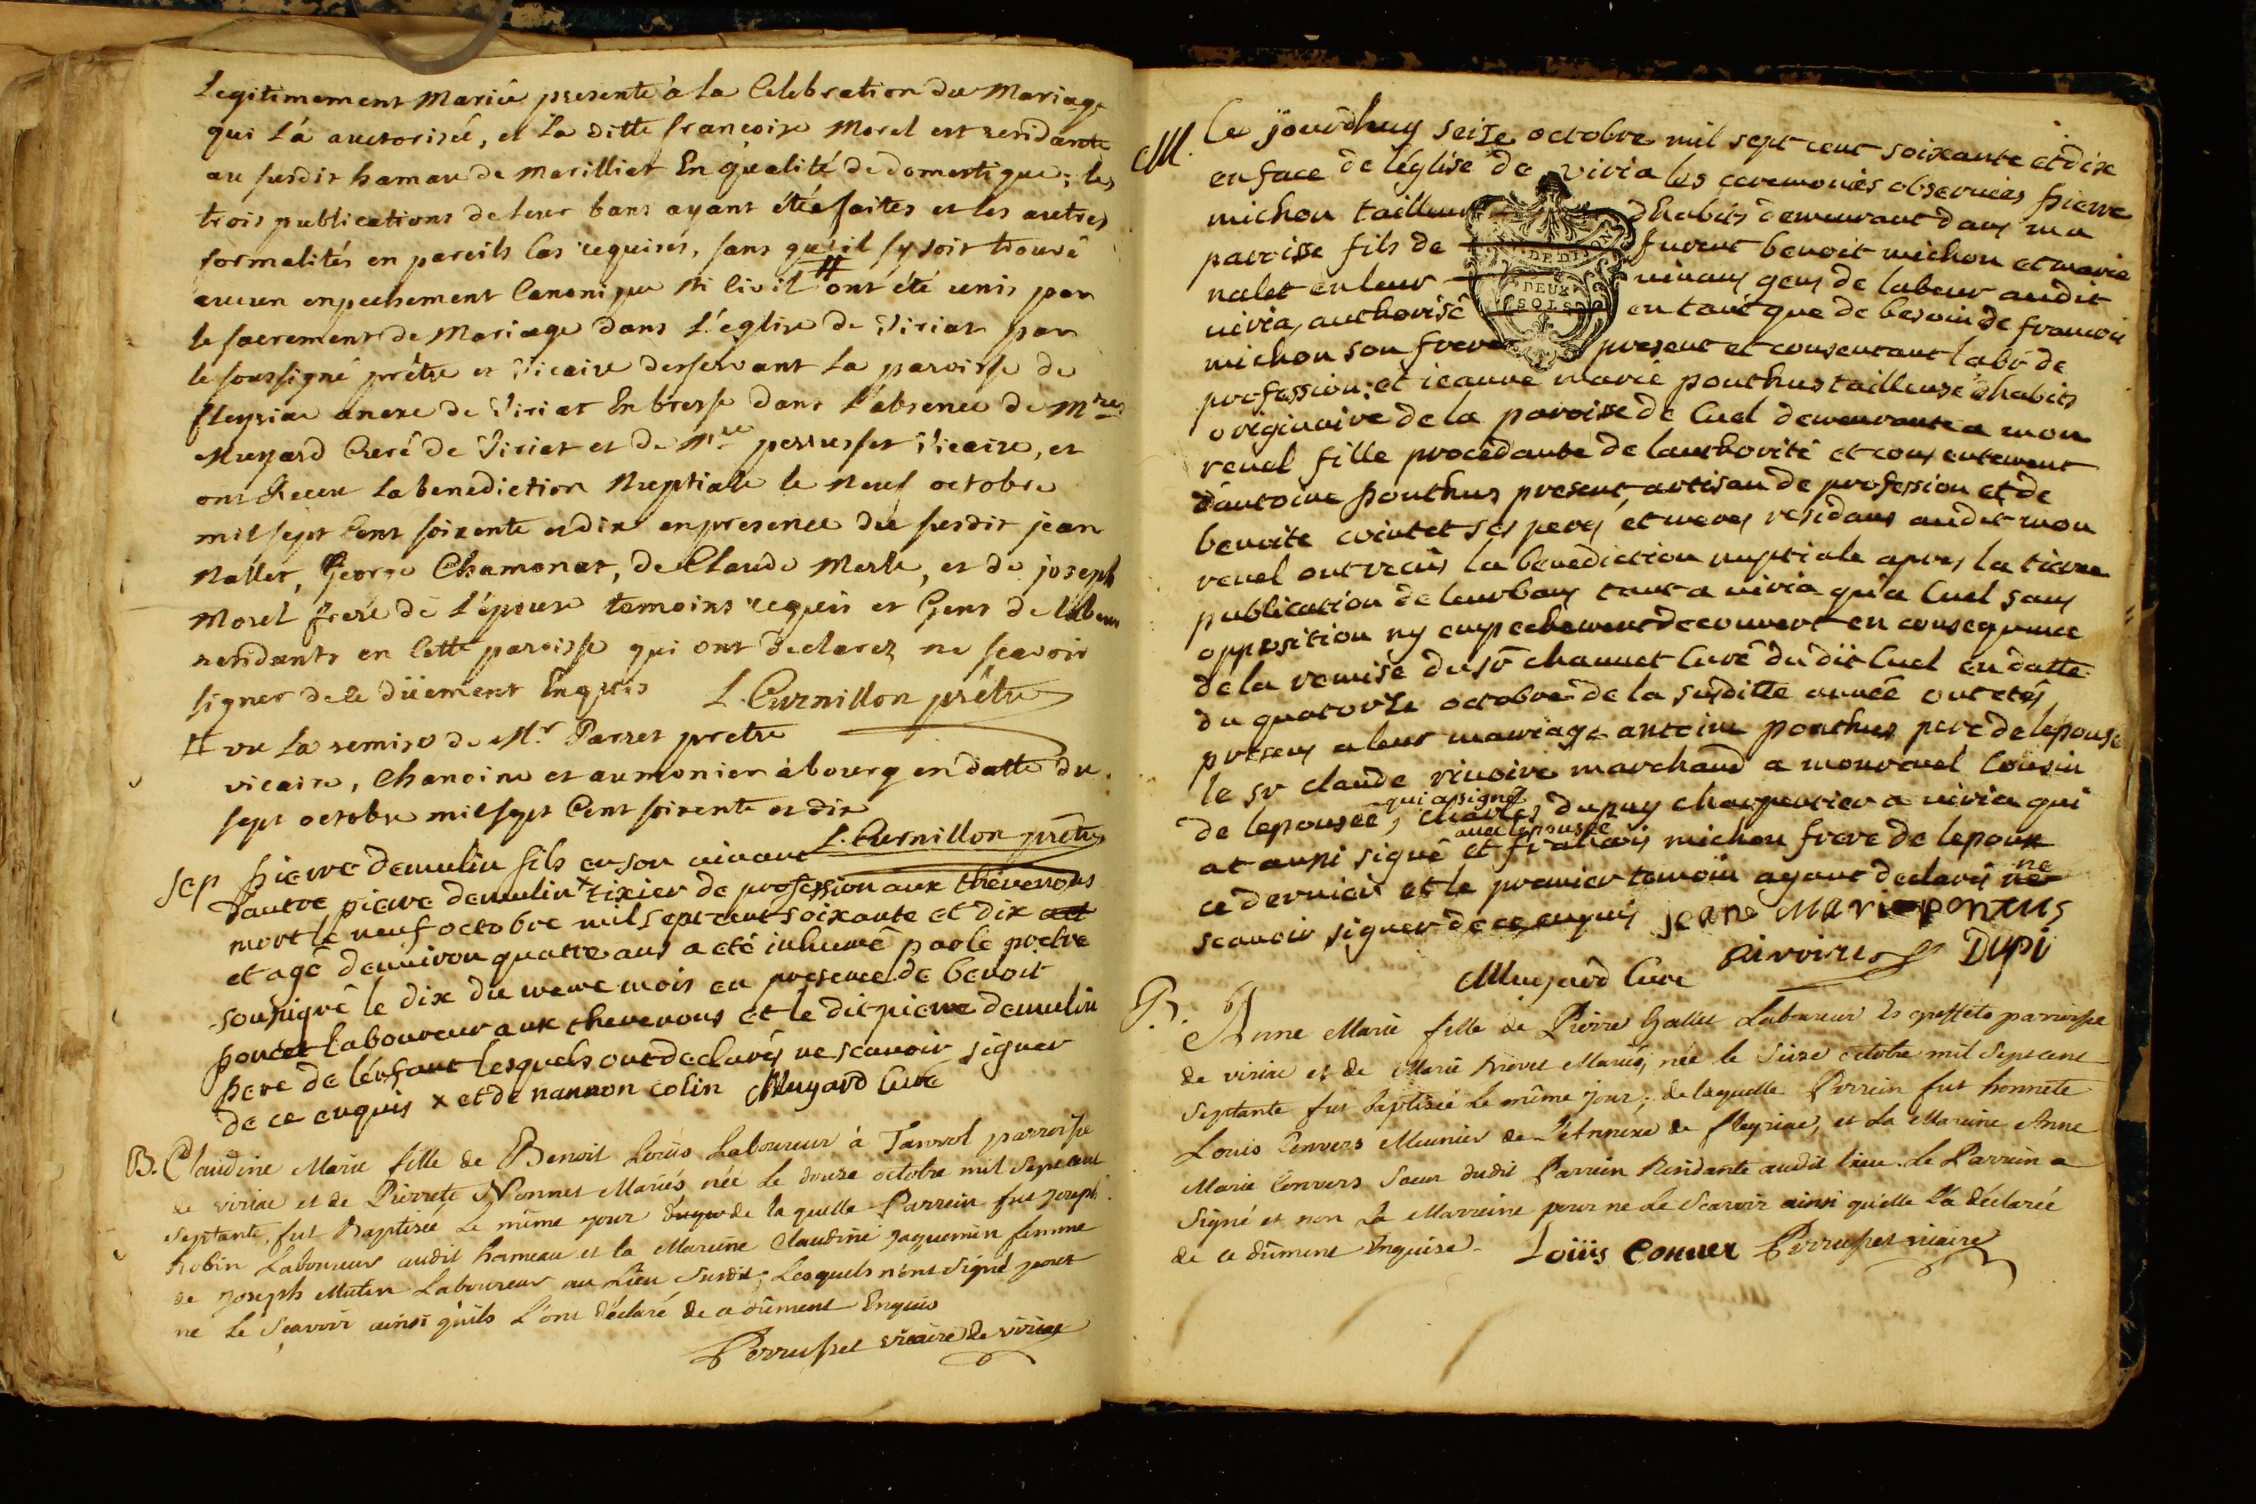 Legitimement Mariée presente à la Celebration du Mariage
qui l'a auctorisée, et la ditte françoise Morel est residante
au susdit hamau de Marilliat En qualité de domestique; les
trois publications de leur bans ayant été faites et les autres
formalités en pareils Cas requises, sans qu'il s'y soit trouvé
aucun enpechement Canonique ni Civil # ont été unis par
le sacrement de Mariage dans L'eglise de Viriat par
le soussigné prêtre et Vicaire desservant la paroisse de
fleyriac anexe de Viriat En bresse dans l'absence de Mre
Muyard Curé de Viriat et de Mre perrusset Vicaire, et
ont Receu la benediction Nuptiale le Neuf octobre
mil sept Cent soixente et dix en presence du susdit jean
Nallet, George Chamonat, de Claude Merle, et de joseph
Morel frere de L'épouse temoins requis et Gens de labeur
residants en Cette paroisse qui ont declarez ne scavoir
signer de ce düement Enquis L. Curnillon prêtre
# vu la remise de Mr. Parret pretre
vicaire, Chanoine et aumonier à bourg en datte du
sept octobre mil sept Cent soixente et dix
L. Curnillon prêtre
sep pierre demulin fils en son vivant
d'autre pierre demulin x tixier de profession aux thevenons
mort le neuf octobre mil sept cent soixante et dix
et agé denviron quatre ans a eté inhumé par le pretre
sousigné le dix du meme mois en presence de benoit
poncet laboureur aux thevenons et le dit pierre demulin
pere de lenfant lesquels ont declarés ne scavoir signer
de ce enquis x et de nannon colin Muyard Curé
B. Claudine Marie fille de Benoit Laboureur à parroisse
de viriac et de Pierrete Nonnet Mariés née le douze octobre mil sept cent
septante, fut Baptisée le même jour de la quelle Parrein fut joseph
Robin Laboureur audit hameau et la Mareine Claudine jaquemin femme
de joseph Mutin Laboureur au Lieu Susdit; Lesquels n'ont signé pour
ne le Sçavoir ainsi qu'ils l'ont déclaré de ce dûment Enquis
Perrusset vicaire de viriac
M. Ce jourdhuy seize octobre mil sept cent soixante et dix
en face de léglise de viria les ceremonies observées pierre
michon tailleur dhabits demeurant dans ma
paroisse fils de furent benoit michon et marie
nalet en leur vivans gens de labeur audit
viria, authorisé en tant que de besoin de francois
michon son frere present et consentant labr de
profession; et jeanne marie ponthus tailleuse dhabits
originaire de la paroisse de Cuel demeurante a mon
revel fille procédante de lauthorité et consentement
dantoine ponthus present, artisan de profession et de
benoite cointet ses peres et meres residans audit mon
revel ont recûs la benediction nuptiale apres la tierce
publication de leur bans tant a viria qu'a Cuel sans
opposition ny empechement decouvert en consequence
de la remise du sr chanuet Curé du dit Cuel en datte
du quatorze octobre de la susditte année ont etés
presens a leur mariage antoine ponthus pere de lepouse
le sr claude rivoire marchand a monrevel Cousin
de lepousée, qui a signé charles dupuy charpentier a viria qui
at aussi signé avec lepousée et francois michon frere de lepoux
ce dernier et le premier temoin ayant declarés ne
scavoir signer de ce enquis jeane Marie ponTUS
Muyard Curé Rivoire DUpi
B. Anne Marie fille de Pierre Gallet Laboureur parroisse
de viriac et de Marie Brevet Mariés, née le Seize octobre mil Sept cent
Septante fut baptisée le même jour; de laquelle Parrein fut honnete
Louis Convers Meunier de L'Annexe de fleyriac, et la Mareine Anne
Marie Convers Sœur dudit Parrein Residante audit lieu. Le Parrein a
Signé et non la Marreine pour ne le Scavoir ainsi qu'elle l'a déclarée
de ce dûment Enquise. Loüis Conver Perrusset vicaire
DE DIJON
DEUX
SOLS